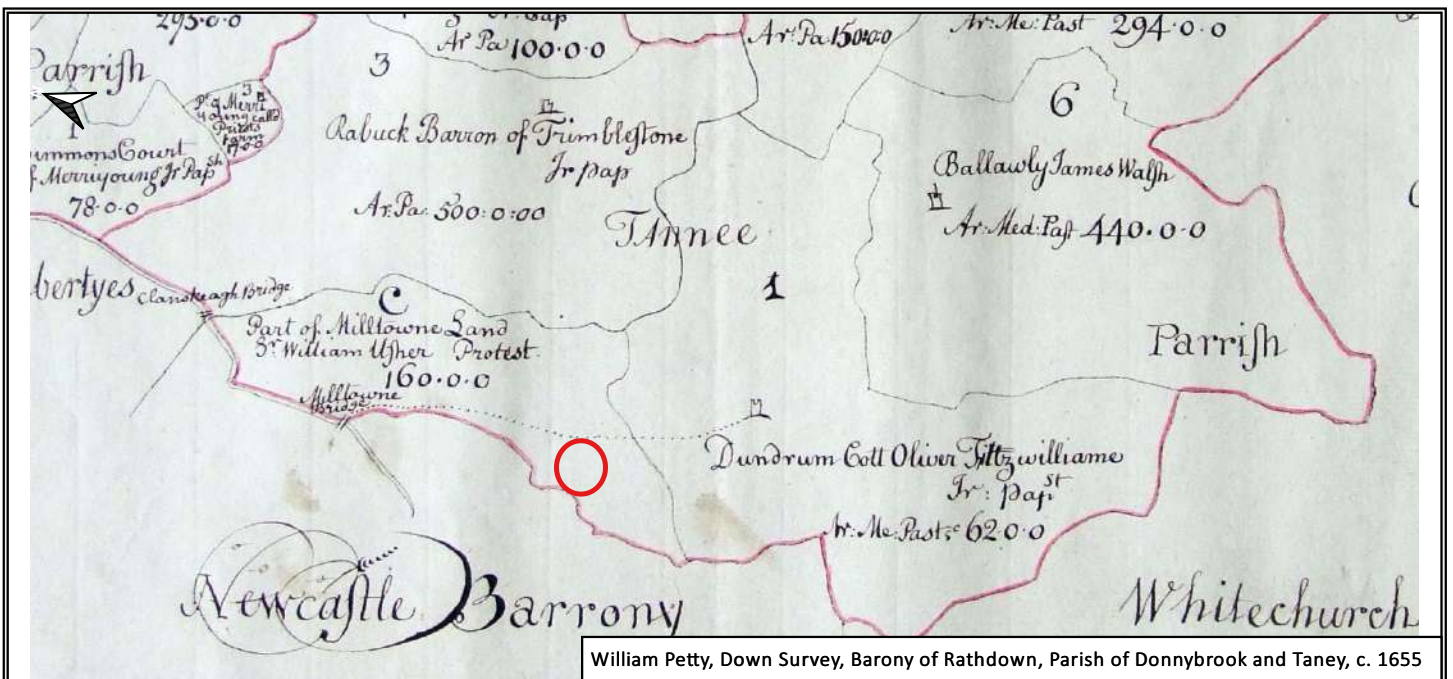 295·0·0
Ar Pa 100·0·0
Ar: Pa 150:0:0
Ar: Me: Past 294·0·0
Parriſh
3
3
Pt of Merri
young calld
Prieſts
farm
17·0·0
1
ummonsCourt
f Merriyoung Jr Papsh
78·0·0
Rabuck Barron of Trimbleſtone
Jr pap
Ar: Pa: 500:0:00
6
Ballawly James Walſh
Ar: Med: Paſt 440·0·0
Tannee
1
bertyes
Clanskeagh Bridge
C
Part of Milltowne Land
Sr William Uſher Protest.
160·0·0
Milltowne
Bridge
Parriſh
Dundrum Coll Oliver Fittzwilliame
Jr: Papst
Ar: Me: Past:c 62·0·0
Newcaſtle Barrony
Whitechurch
William Petty, Down Survey, Barony of Rathdown, Parish of Donnybrook and Taney, c. 1655